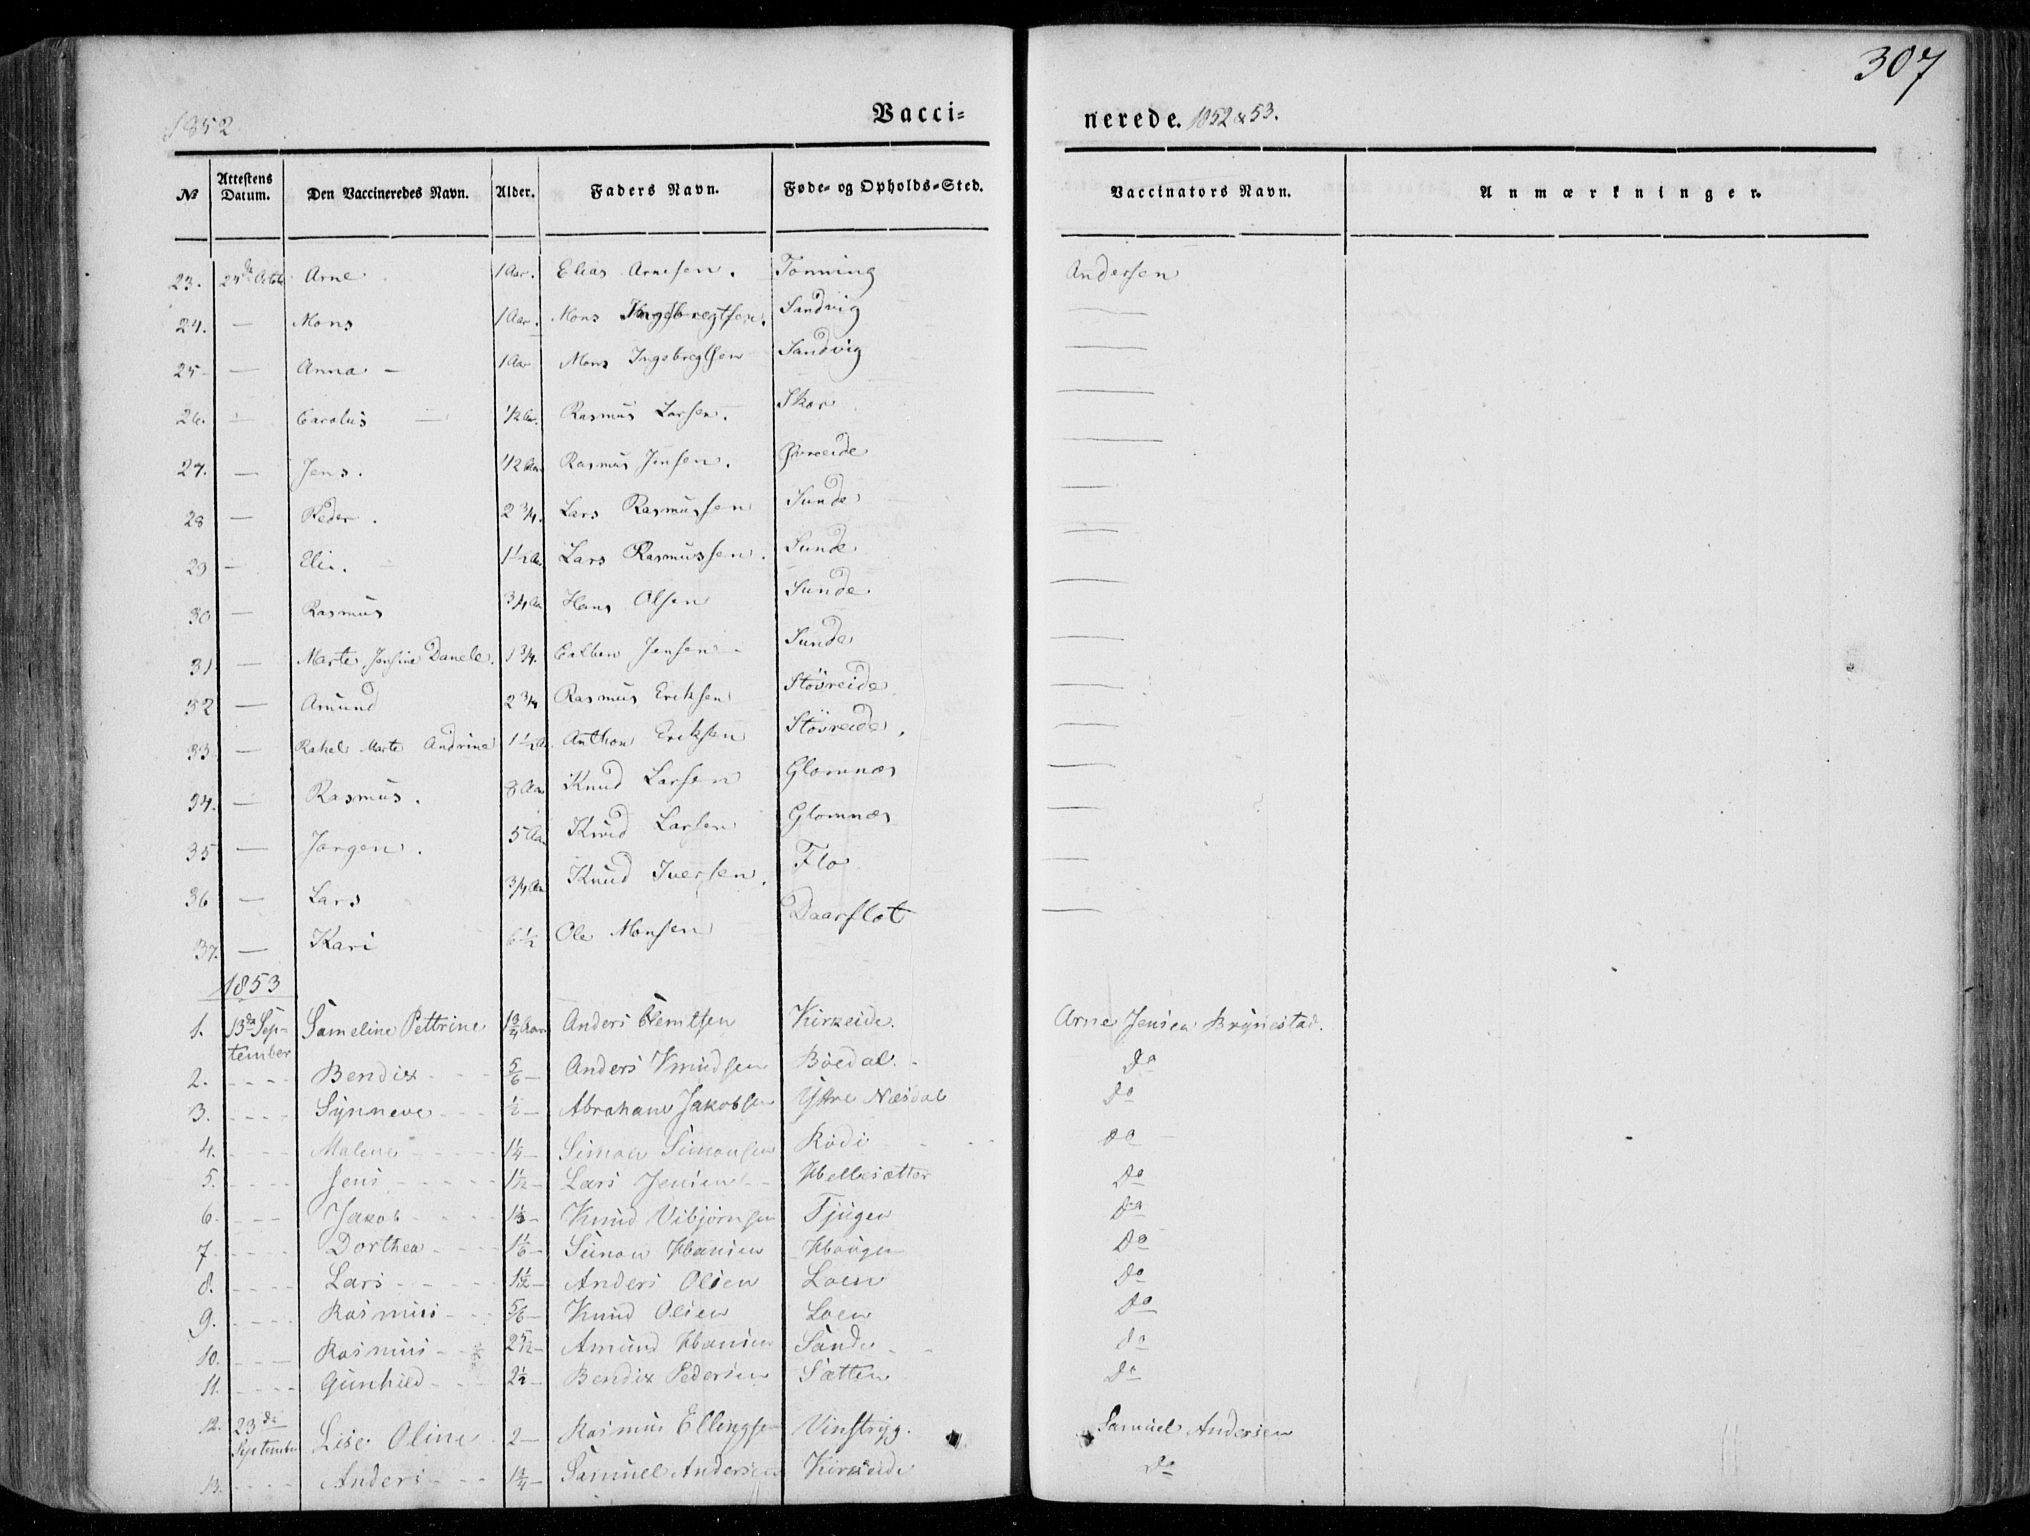 307
1852
Vacci=
nerede. 1852 & 53.
№ Attestens Datum. Den Vaccineredes Navn. Alder. Faders Navn. Føde- og Opholds-Sted. Vaccinators Navn. Anmærkninger.
23. 24de Octob Arne 1 Aar. Elias Arnesen. Tonning Andersen
24. — Mons 1 Aar. Mons Ingebregtsen. Sandvig —
25 — Anna — 1 Aar Mons Ingebregtsen Sandvig —
26. — Carolus — 1/2 Aar. Rasmus Larsen. Skar —
27. — Jens. 1/2 Aar Rasmus Jensen. Øvreeide —
28 — Peder. 2 3/4. Lars Rasmussen Sunde —
29 — Eli. 1 1/2 Aar Lars Rasmussen. Sunde —
30 — Rasmus 3/4 Aar Hans Olsen Sunde —
31 — Marte Jensine Danele. 1 3/4. Jensen Sunde —
32 — Amund 2 3/4 Rasmus Eriksen Støvreide —
33 — Rahel Marte Andrine 1 1/2 A. Anthon Eriksen Støvreide. —
34. — Rasmus. 8 Aar Knud Larsen Glomnæs —
35 — Jørgen. 5 Aar Knud Larsen Glomnæs —
36 — Lars 3/4 Aar Knud Iversen. Flo —
37. — Kari 6 1/2 Ole Monsen Daarflot —
1853
1. 13de Sep- Sameline Pettrine 1 3/4 Aar Anders Clemtsen Kirkeide. Arne Jensen Brynestad.
tember
2. - - - - Bendix - - - 5/6 — Anders Knudsen Bøedal. - do
3. - - - - Synneve - - - 1/2 — Abraham Jakobsen Yttre Næsdal do
4. Malene - - - - 1 1/4 — Simon Simonsen Rødi do
5. - - - - Jens - - - - - 1 1/12 — Lars Jensen - - Hellesætter do
6. - - - Jakob - - - - 1 1/3 — Knud Vibjørnsen Tjugen do
7. - - - - Dorthea - - - 1 1/6 — Simon Hansen Haugen do
8. - - - - Lars - - - - 1 1/2 — Anders Olsen Loen do
9. - - - - Rasmus - - - 5/6 — Knud Olsen Loen do
10. - - - Rasmus - - 2 5/12 — Amund Hansen Sande - - do
11. - - - - Gunhild - - - 2 1/2 — Bendix Pedersen Sætten do
12. 23de September Lise Oline 2 — Rasmus Ellingsen Vinstryg. Samuel Andersen
13. - - - - Anders - - - 1 3/4 — Samuel Andersen Kirkeide do